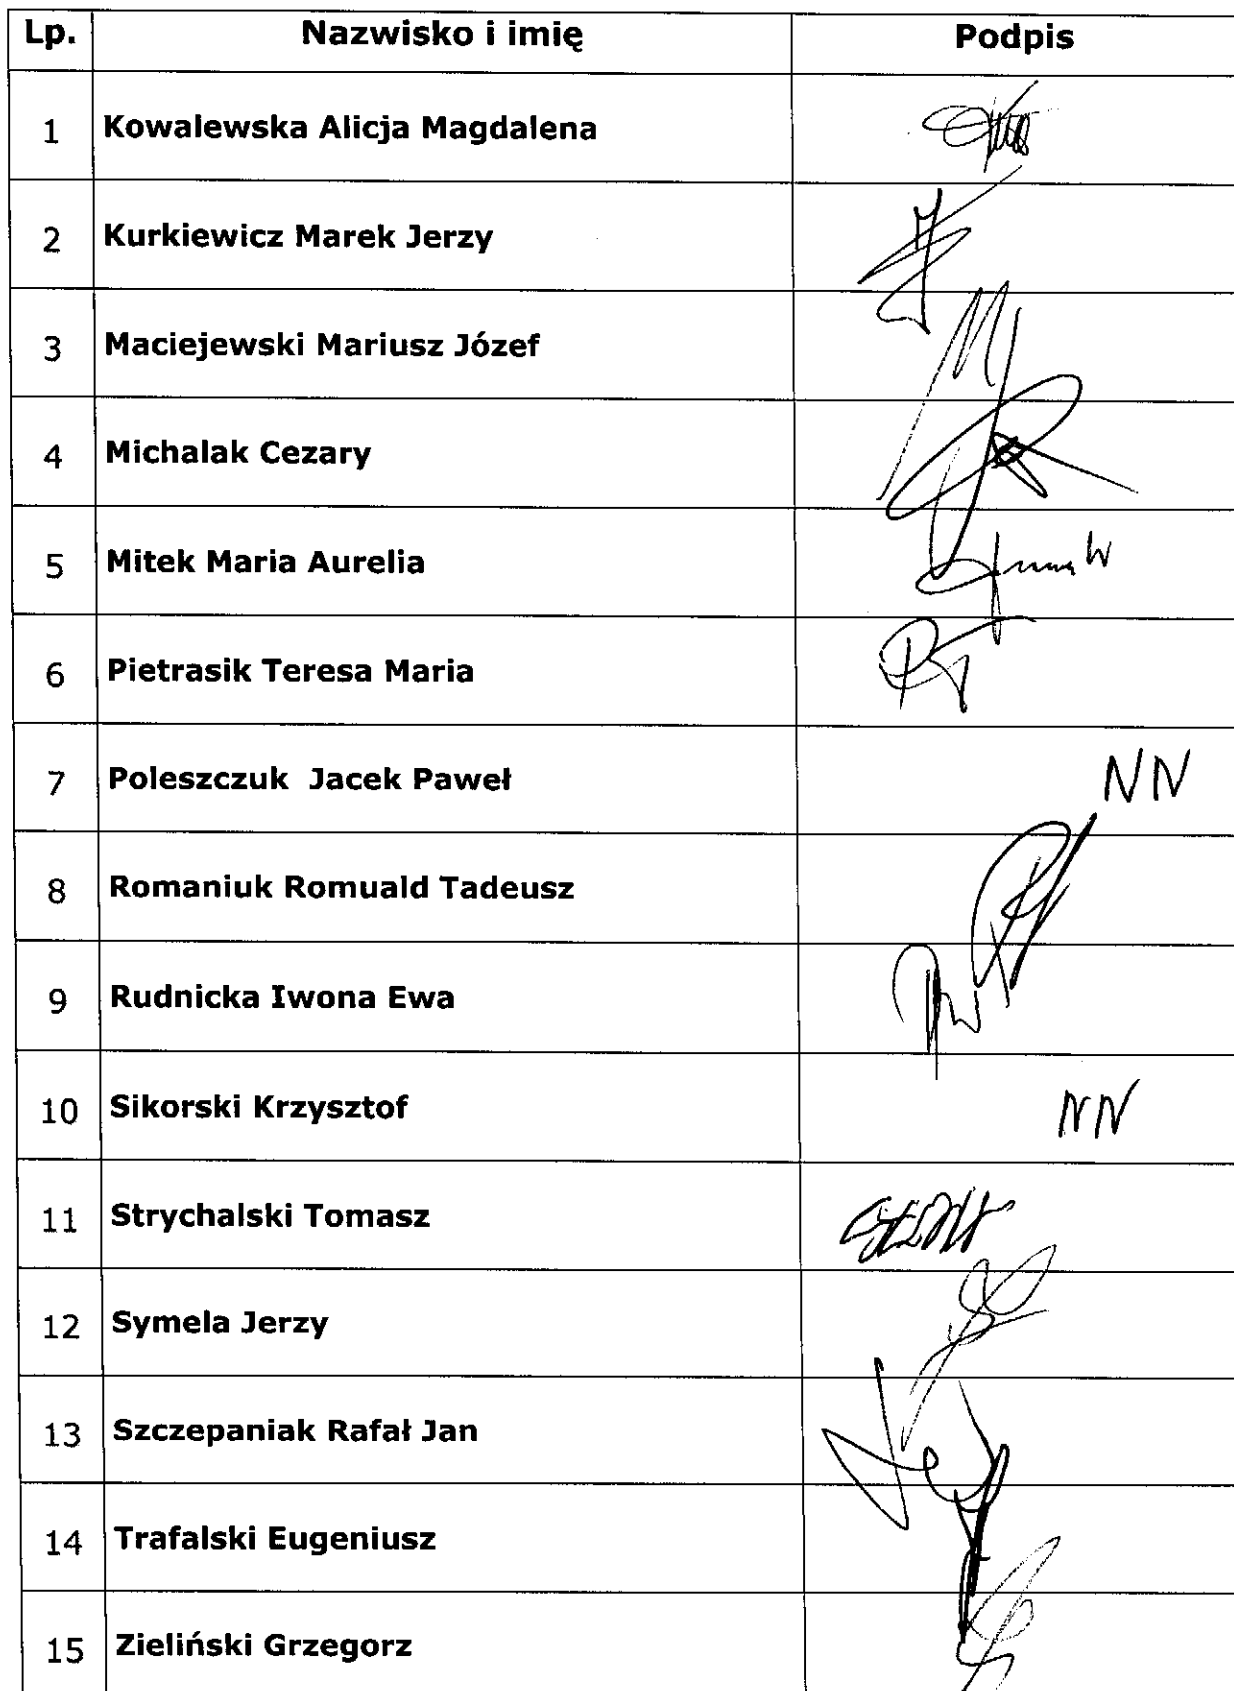 Lp. Nazwisko i imię Podpis
1 Kowalewska Alicja Magdalena
2 Kurkiewicz Marek Jerzy
3 Maciejewski Mariusz Józef
4 Michalak Cezary
5 Mitek Maria Aurelia
6 Pietrasik Teresa Maria
7 Poleszczuk Jacek Paweł NN
8 Romaniuk Romuald Tadeusz
9 Rudnicka Iwona Ewa
10 Sikorski Krzysztof NN
11 Strychalski Tomasz
12 Symela Jerzy
13 Szczepaniak Rafał Jan
14 Trafalski Eugeniusz
15 Zieliński Grzegorz